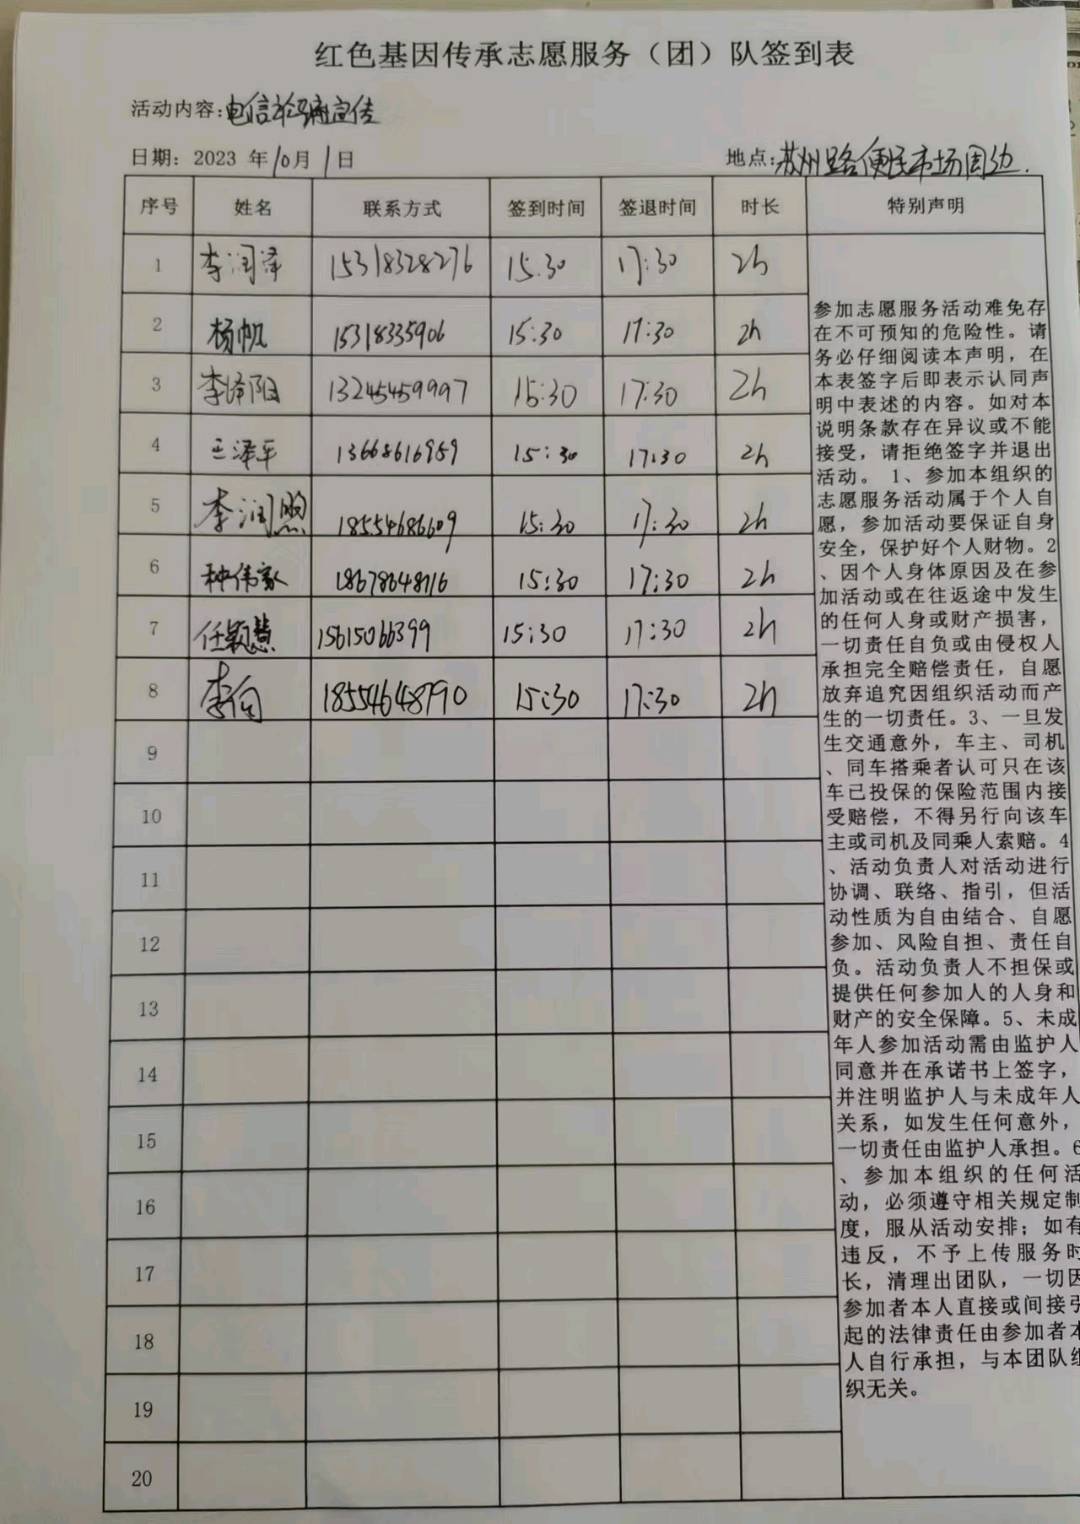 红色基因传承志愿服务（团）队签到表
活动内容：电信诈骗宣传
日期：2023 年10月1日 地点：苏州路便民市场周边.
序号 姓名 联系方式 签到时间 签退时间 时长 特别声明
1 李润泽 15318328276 15:30 17:30 2h
2 杨帆 15318335906 15:30 17:30 2h
3 李泽阳 13245459997 15:30 17:30 2h
4 王泽平 13668616959 15:30 17:30 2h
5 李润煦 18554686609 15:30 17:30 2h
6 种伟家 18678648716 15:30 17:30 2h
7 任颖慧 15615066399 15:30 17:30 2h
8 李向 18554648790 15:30 17:30 2h
9
10
11
12
13
14
15
16
17
18
19
20
参加志愿服务活动难免存
在不可预知的危险性。请
务必仔细阅读本声明，在
本表签字后即表示认同声
明中表述的内容。如对本
说明条款存在异议或不能
接受，请拒绝签字并退出
活动。 1、参加本组织的
志愿服务活动属于个人自
愿，参加活动要保证自身
安全，保护好个人财物。2
、因个人身体原因及在参
加活动或在往返途中发生
的任何人身或财产损害，
一切责任自负或由侵权人
承担完全赔偿责任，自愿
放弃追究因组织活动而产
生的一切责任。3、一旦发
生交通意外，车主、司机
、同车搭乘者认可只在该
车已投保的保险范围内接
受赔偿，不得另行向该车
主或司机及同乘人索赔。4
、活动负责人对活动进行
协调、联络、指引，但活
动性质为自由结合、自愿
参加、风险自担、责任自
负。活动负责人不担保或
提供任何参加人的人身和
财产的安全保障。5、未成
年人参加活动需由监护人
同意并在承诺书上签字，
并注明监护人与未成年人
关系，如发生任何意外，
一切责任由监护人承担。6
、参加本组织的任何活
动，必须遵守相关规定制
度，服从活动安排；如有
违反，不予上传服务时
长，清理出团队，一切因
参加者本人直接或间接引
起的法律责任由参加者本
人自行承担，与本团队组
织无关。